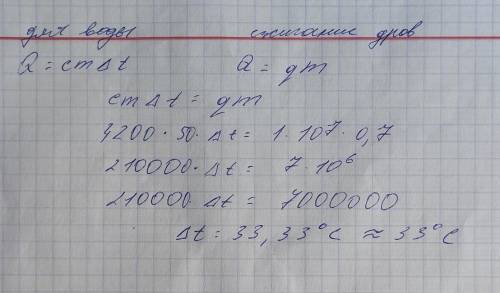 для воды сжигание дров
Q = cmΔt Q = qm
cmΔt = qm
4200 · 50 · Δt = 1 · 10⁷ · 0,7
210000 · Δt = 7 · 10⁶
210000 Δt = 7000000
Δt = 33,33°C ≈ 33°C